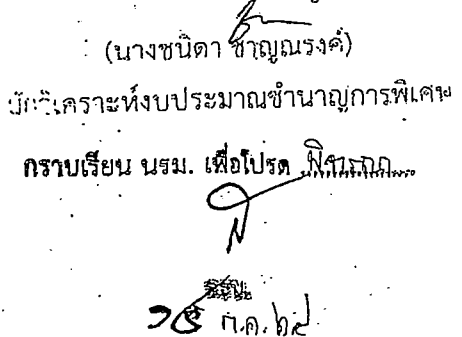 (นางชนิดา ชาญณรงค์)
นักวิเคราะห์งบประมาณชำนาญการพิเศษ
กราบเรียน นรม. เพื่อโปรด พิจารณา
ก.ค. ๖๙